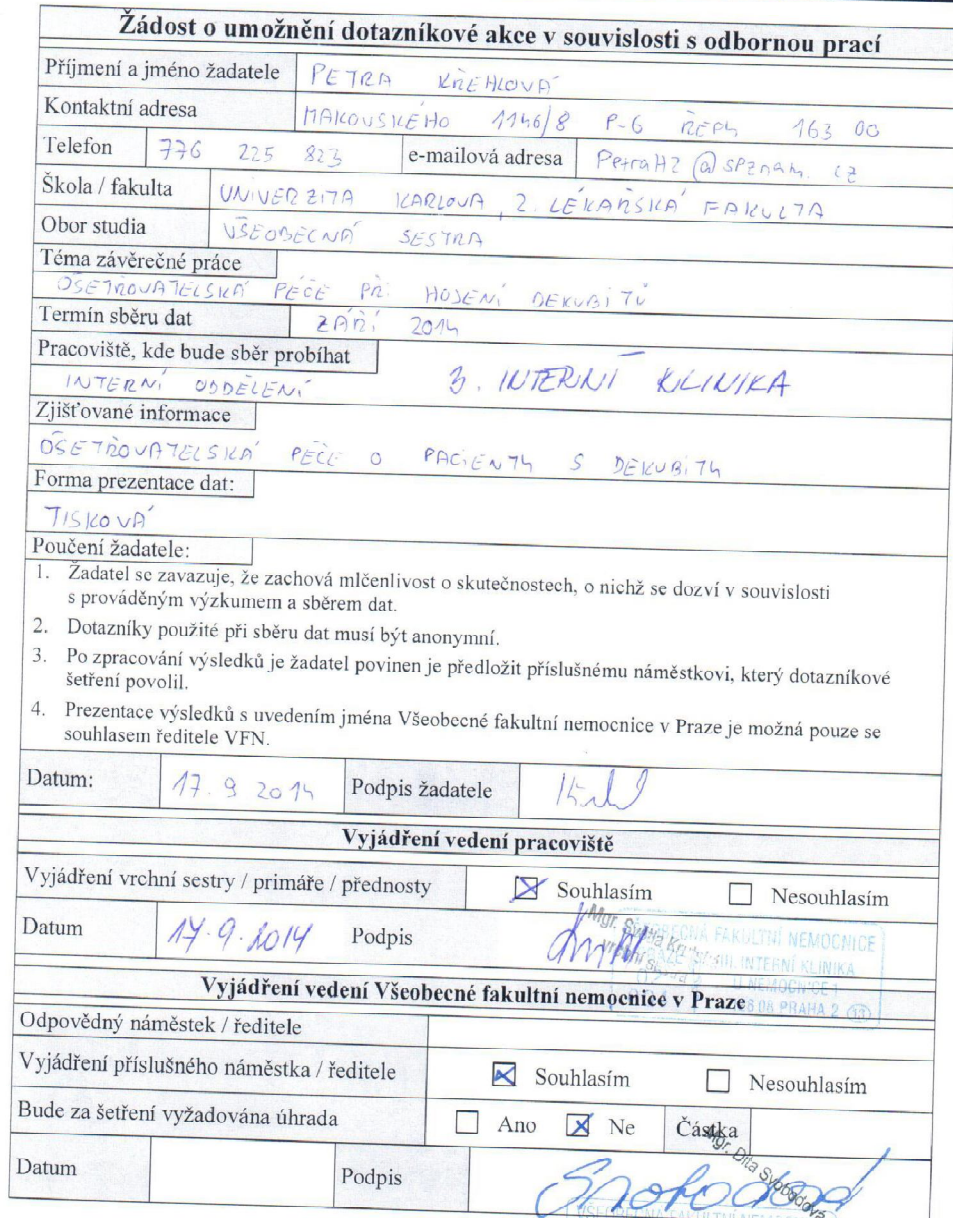 Žádost o umožnění dotazníkové akce v souvislosti s odbornou prací
Příjmení a jméno žadatele PETRA KŘEHLOVÁ
Kontaktní adresa MAKOVSKÉHO 1146/8 P-6 ŘEPY 163 00
Telefon 776 225 823 e-mailová adresa PetraHZ@seznam.cz
Škola / fakulta UNIVERZITA KARLOVA, 2. LÉKAŘSKÁ FAKULTA
Obor studia VŠEOBECNÁ SESTRA
Téma závěrečné práce
OŠETŘOVATELSKÁ PÉČE PŘI HOJENÍ DEKUBITŮ
Termín sběru dat ZÁŘÍ 2014
Pracoviště, kde bude sběr probíhat
INTERNÍ ODDĚLENÍ 3. INTERNÍ KLINIKA
Zjišťované informace
OŠETŘOVATELSKÁ PÉČE O PACIENTY S DEKUBITY
Forma prezentace dat:
TISKOVÁ
Poučení žadatele:
1. Žadatel se zavazuje, že zachová mlčenlivost o skutečnostech, o nichž se dozví v souvislosti
s prováděným výzkumem a sběrem dat.
2. Dotazníky použité při sběru dat musí být anonymní.
3. Po zpracování výsledků je žadatel povinen je předložit příslušnému náměstkovi, který dotazníkové
šetření povolil.
4. Prezentace výsledků s uvedením jména Všeobecné fakultní nemocnice v Praze je možná pouze se
souhlasem ředitele VFN.
Datum: 17. 9 2014 Podpis žadatele
Vyjádření vedení pracoviště
Vyjádření vrchní sestry / primáře / přednosty Souhlasím Nesouhlasím
Datum 17.9.2014 Podpis
Mgr.
FAKULTNÍ NEMOCNICE
III. INTERNÍ KLINIKA
U NEMOCNICE 1
PRAHA 2
Vyjádření vedení Všeobecné fakultní nemocnice v Praze
Odpovědný náměstek / ředitele
Vyjádření příslušného náměstka / ředitele Souhlasím Nesouhlasím
Bude za šetření vyžadována úhrada Ano Ne Částka
Datum Podpis
Mgr. Dita Svobodová
VŠEOBECNÁ FAKULTNÍ